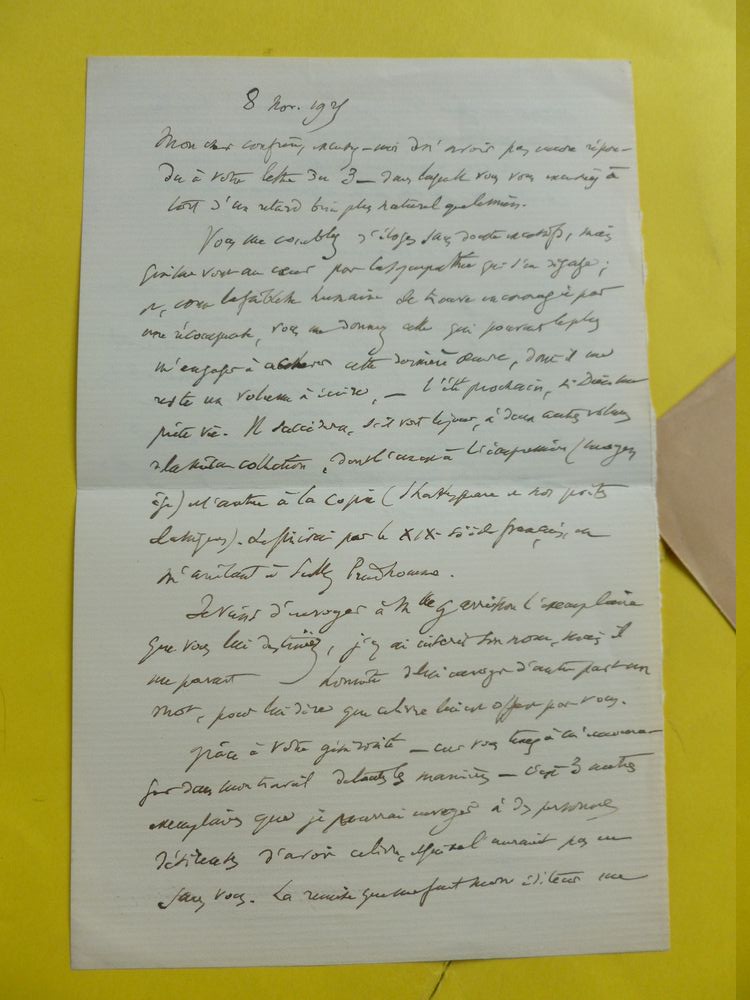 8 Nov. 1925
Mon cher confrère, excusez-moi de n'avoir pas encore répon-
du à votre lettre du 3 — dans laquelle vous vous excusiez à
tort d'un retard bien plus naturel que le mien.
Vous me comblez d'éloges sans doute excessifs, mais
qui me vont au cœur par la sympathie qui s'en dégage ;
et, comme la faiblesse humaine se trouve encouragée par
une récompense, vous me donnez celle qui pouvait le plus
m'engager à achever cette dernière œuvre, dont il me
reste un volume à écrire, — l'été prochain, si Dieu me
prête vie. Il succédera, s'il voit le jour, à deux autres volumes
de la même collection, dont l'un est à l'impression (moyen
âge) et l'autre à la copie (Shakespeare et nos poètes
classiques). Je finirai par le XIXe siècle français, en
m'arrêtant à Sully Prudhomme.
Je viens d'envoyer à Mlle Garrisson l'exemplaire
que vous lui destiniez, j'y ai inscrit son nom, mais il
me parait de lui envoyer d'autre part un
mot, pour lui dire que ce livre lui est offert par vous.
Grâce à votre générosité — car vous tenez à m'encoura-
ger dans mon travail de toutes les manières — c'est 3 autres
exemplaires que je pourrai envoyer à des personnes
désireuses d'avoir ce livre, et qui ne l'auraient pas eu
sans vous. La remise que me fait mon éditeur me